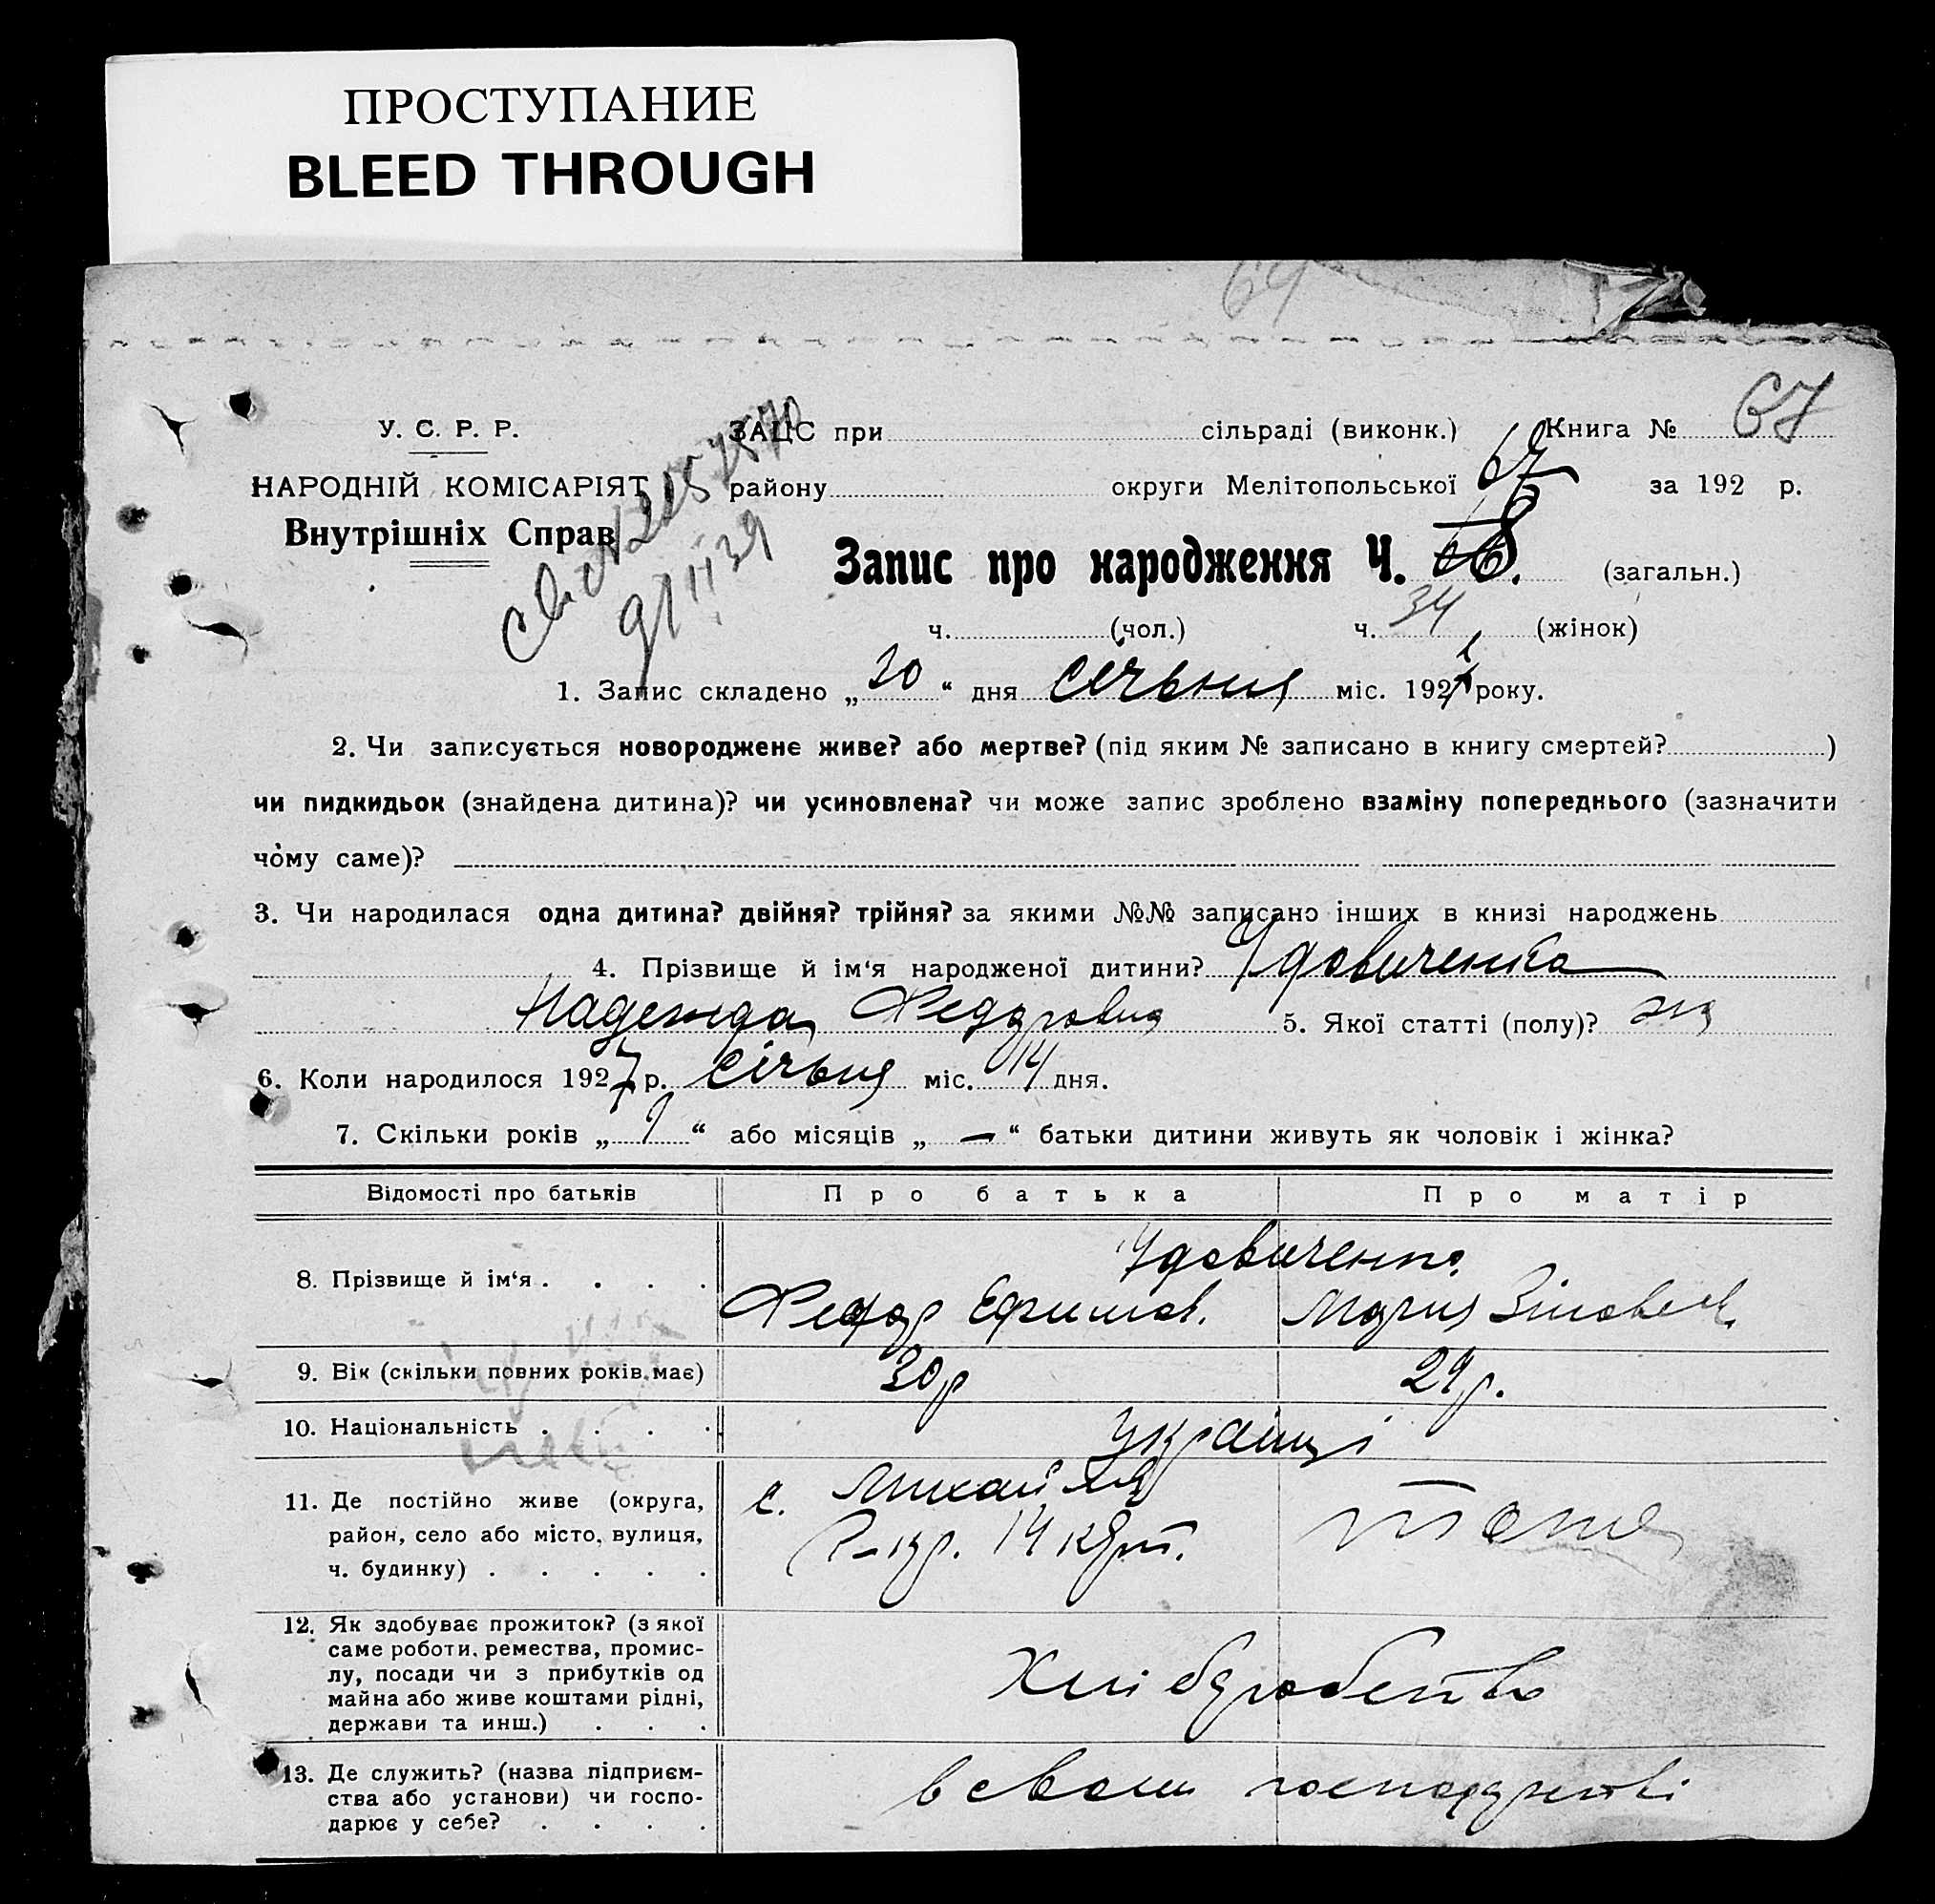 ПРОСТУПАНИЕ
BLEED THROUGH
64
67
У. С. Р. Р.
ЗАЦС при сільраді (виконк.) Книга №
НАРОДНІЙ КОМІСАРІЯТ
району округи Мелітопольської 67 за 192 р.
Внутрішніх Справ
Запис про народження Ч. (загальн.)
ч. (чол.) ч. 34 (жінок)
1. Запис складено „ 20 “ дня січьня міс. 192 року.
2. Чи записується новороджене живе? або мертве? (під яким № записано в книгу смертей? )
чи пидкидьок (знайдена дитина)? чи усиновлена? чи може запис зроблено взаміну попереднього (зазначити
чому саме)?
3. Чи народилася одна дитина? двійня? трійня? за якими №№ записано інших в книзі народжень
4. Прізвище й ім‘я народженої дитини? Удовиченко
Надежда Федоровна 5. Якої статті (полу)?
6. Коли народилося 1927 р. січьня міс. 14 дня.
7. Скільки років „ 9 “ або місяців „ — “ батьки дитини живуть як чоловік і жінка?
Відомості про батьків Про батька Про матір
Удовиченко
8. Прізвище й ім‘я . . . .
Федор Ефимов. Мария Зіновьев.
9. Вік (скільки повних років має) 30 р 29 р.
10. Національність . . . . Українці
11. Де постійно живе (округа,
район, село або місто, вулиця,
ч. будинку) . . . . .
с. Михайлів
14 тоже
12. Як здобуває прожиток? (з якої
саме роботи, ремества, промис-
лу, посади чи з прибутків од
майна або живе коштами рідні,
держави та инш.) . . .
Хліборобство
13. Де служить? (назва підприєм-
ства або установи) чи госпо-
дарює у себе? . . . .
в своем господрстві